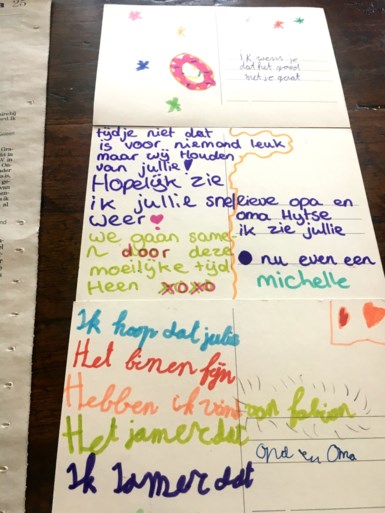 Ik wens je
dat het goed
met je gaat
tijdje niet dat
is voor niemand leuk
maar wij Houden
van jullie!
Hopelijk zie
ik jullie snel
weer
we gaan same-
n door deze
moeilijke tijd
Heen xoxo
lieve opa en
oma Hytse
ik zie jullie
nu even een
michelle
Ik hoop dat julie
Het binen fijn
Hebben ik vin
Het jamer dat
Ik Jamer dat
van fabian
Opa en Oma